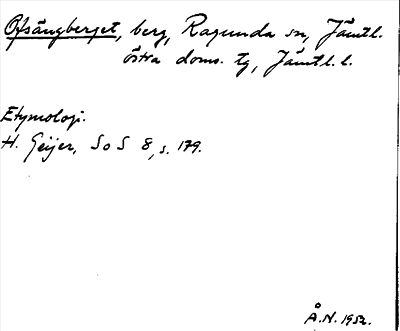 Ofsångberget, berg, Ragunda sn, Jämtl.
östra doms. tg, Jämtl. l.
Etymologi.
H. Geijer, SoS 8, s. 179.
Å.N. 1952.